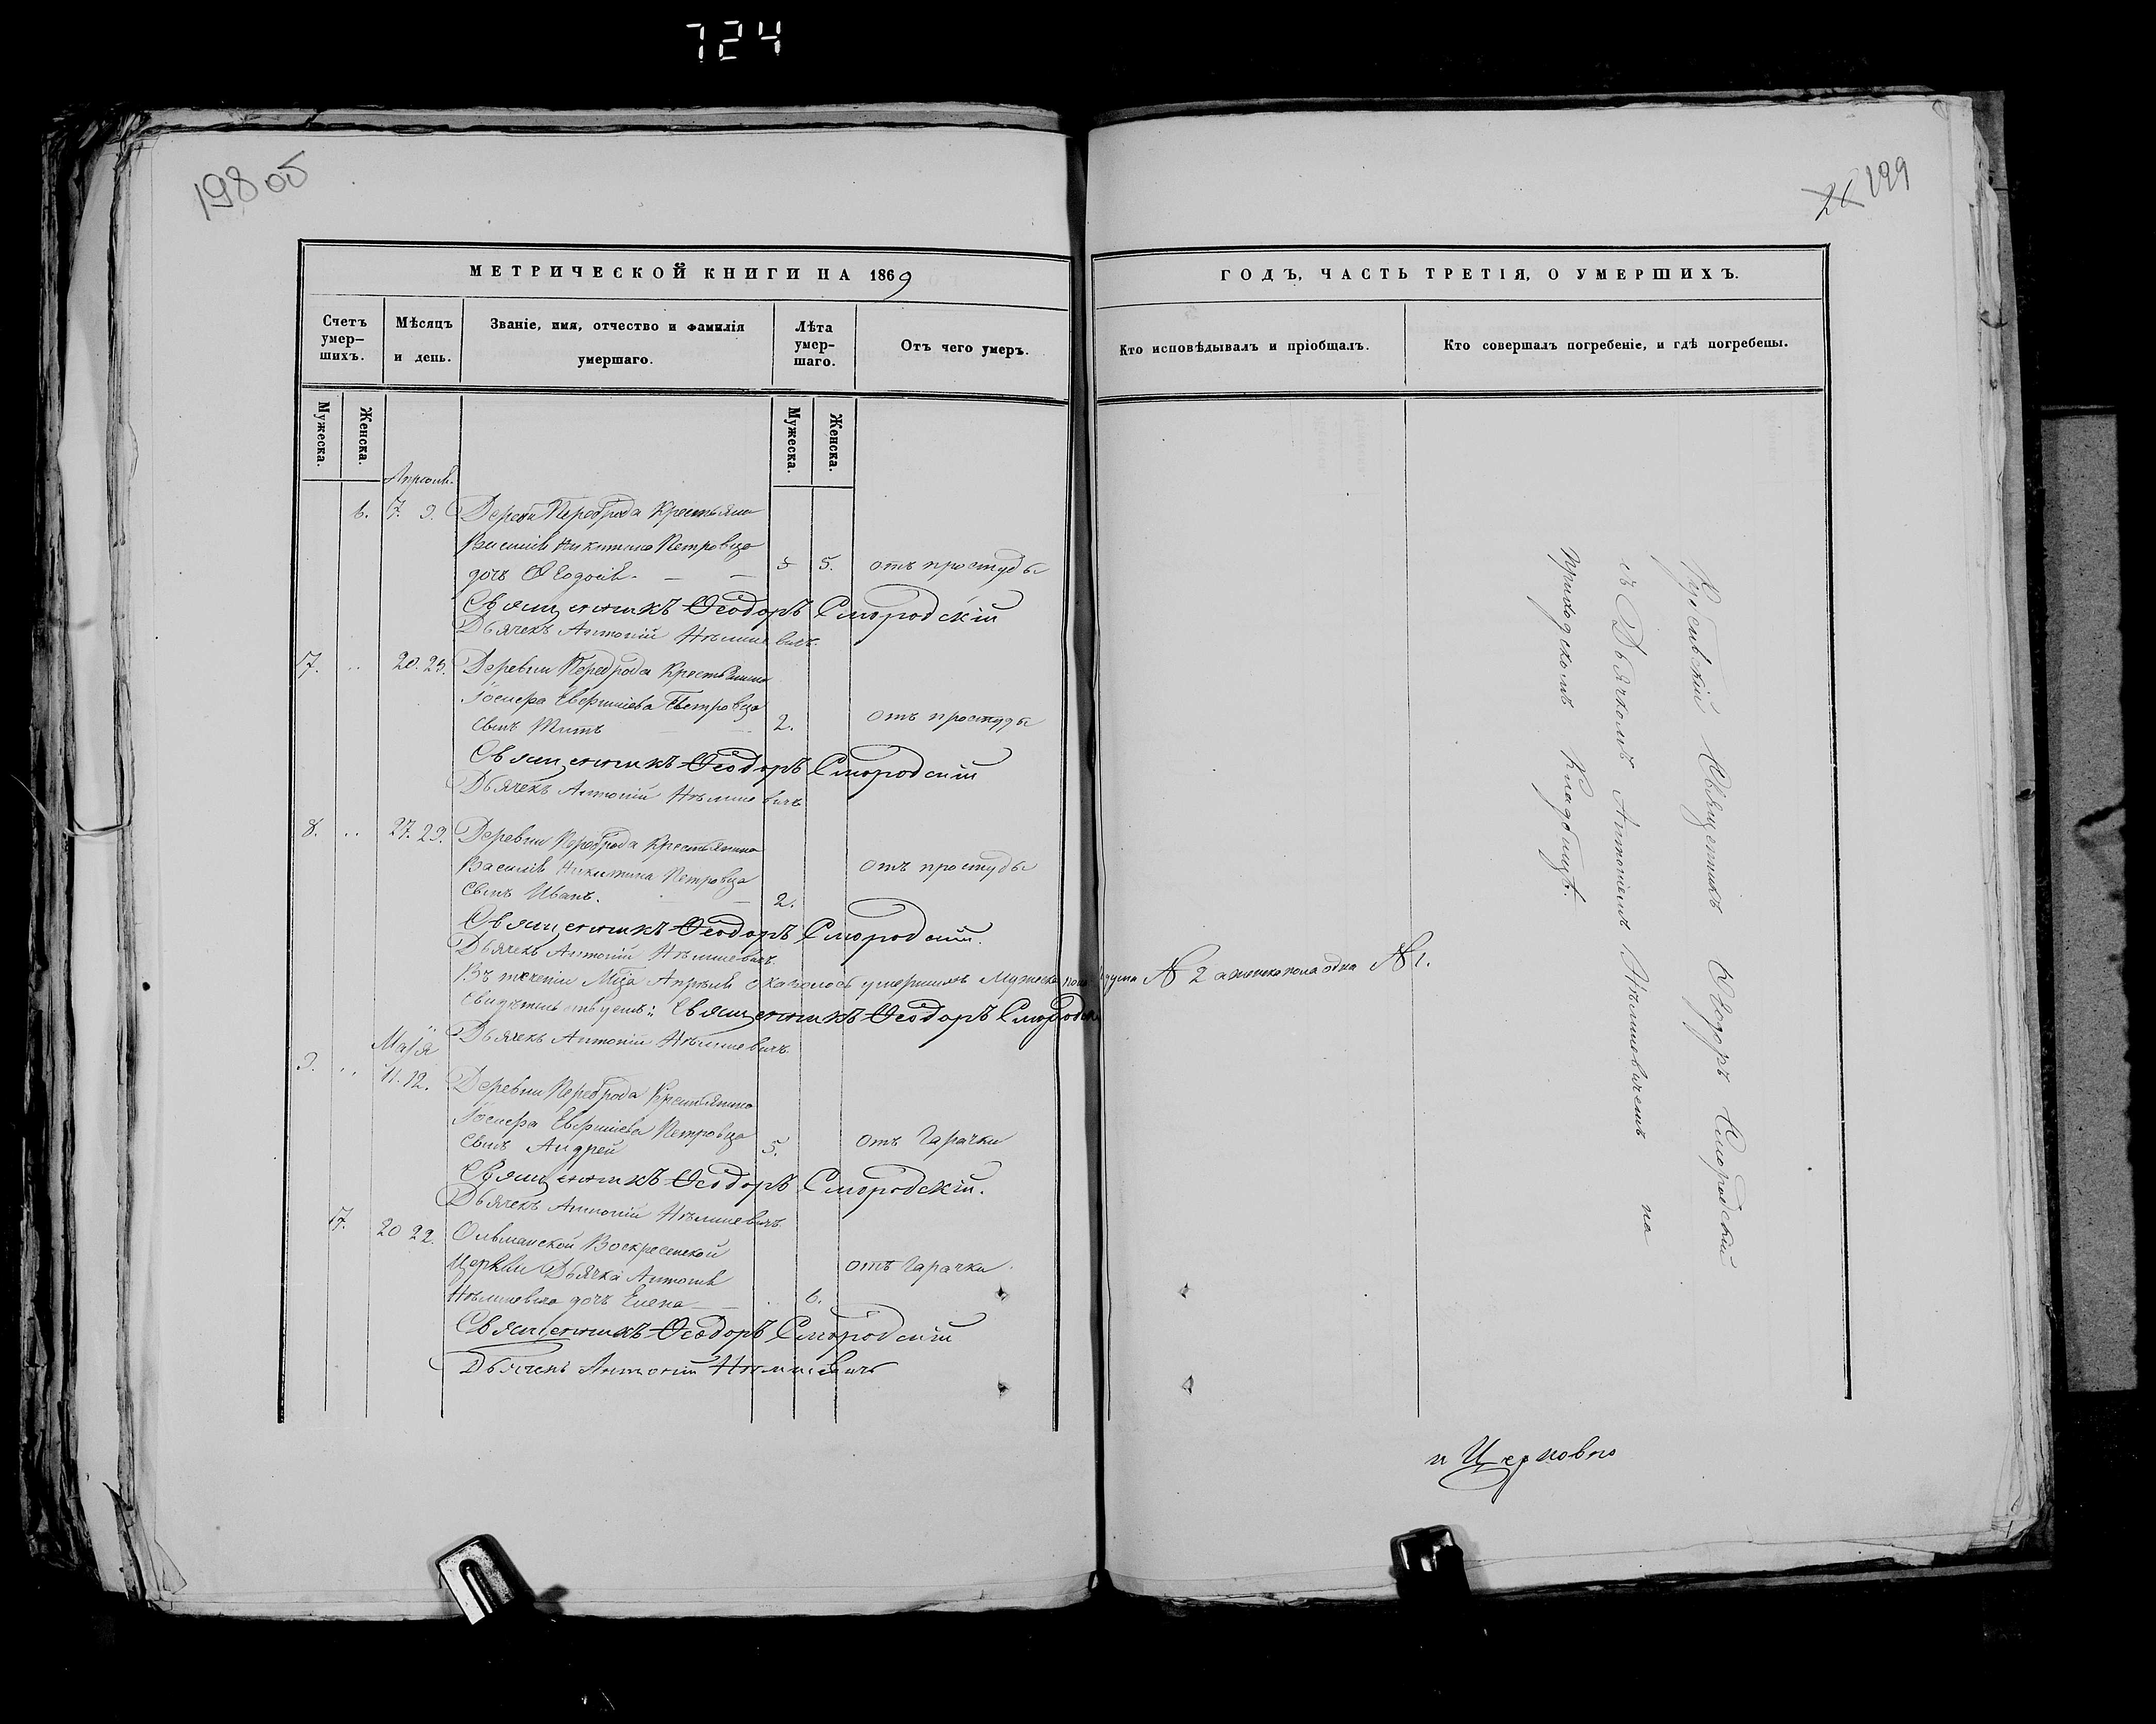 724
198 об
199
МЕТРИЧЕСКОЙ КНИГИ НА 1869
ГОДЪ, ЧАСТЬ ТРЕТІЯ, О УМЕРШИХЪ.
Счетъ умер-шихъ.
Мѣсяцъ и день.
Званіе, имя, отчество и фамилія умершаго.
Лѣта умер-шаго.
Отъ чего умеръ.
Кто исповѣдывалъ и пріобщалъ.
Кто совершалъ погребеніе, и гдѣ погребены.
Мужеска.
Женска.
Мужеска.
Женска.
Апрѣль.
6. 7. 9. Переброда Крестьянина
Василія Никитина Петровца
дочь Ѳеодосія. 5. отъ простуды
Священникъ Ѳеодоръ Смородскій
Дьячекъ Антоній Нѣмшевичъ.
7. .. 20. 25. Деревни Переброда Крестьянина
Петровца
сынъ Титъ 2. отъ простуды
Священникъ Ѳеодоръ Смородскій
Дьячекъ Антоній Нѣмшевичъ
8. .. 27. 29. Деревни Переброда Крестьянина
Василія Никитина Петровца отъ простуды
сынъ Иванъ. 2.
Священникъ Ѳеодоръ Смородскій.
Дьячекъ Антоній Нѣмшевичъ.
Въ теченіи Мца Апрѣля оказалось умершихъ Мужеска пола души № 2 а женска пола одна № 1.
Священникъ Ѳеодоръ Смородскій
Дьячекъ Антоній Нѣмшевичъ.
Маія
9. .. 11. 12. Деревни Переброда Крестьянина
Петровца
сынъ Андрей 5. отъ Гарачки
Священникъ Ѳеодоръ Смородскій.
Дьячекъ Антоній Нѣмшевичъ.
7. 20 22. Ольманской Воскресенской
Церкви Дьячка Антонія отъ Гарачки.
Нѣмшевича дочь Елена 6.
Священникъ Ѳеодоръ Смородскій
Дьячекъ Антоній Нѣмшевичъ
Священникъ Ѳеодоръ Смородскій
съ Дьячкомъ Антоніемъ Нѣмшевичемъ на
приходскомъ Кладбищѣ.
и Церковно